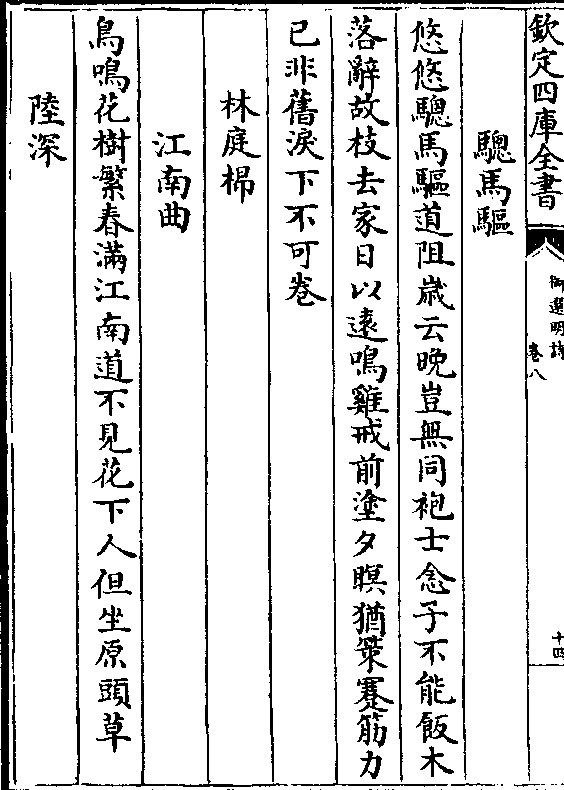 欽定四庫全書
御選明詩
卷八
十四
驄馬驅
悠悠驄馬驅道阻歲云晚豈無同袍士念子不能飯木
落辭故枝去家日以遠鳴雞戒前塗夕暝猶策蹇筋力
已非舊淚下不可卷
林庭㭿
江南曲
鳥鳴花樹繁春滿江南道不見花下人但坐原頭草
陸深